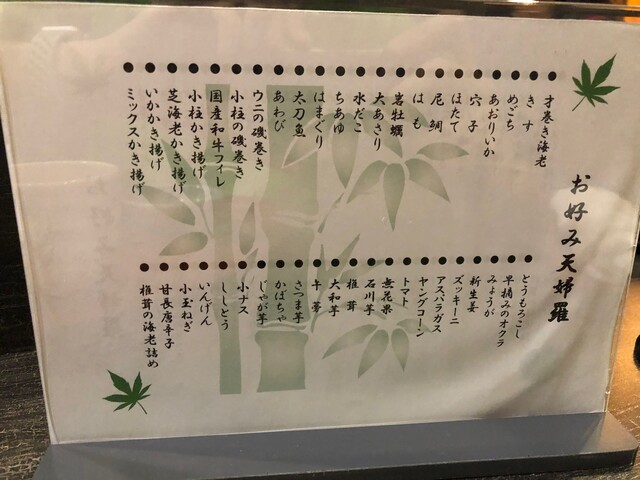 お好み天婦羅
才巻き海老
きす
めごち
あおりいか
穴子
ほたて
尼鯛
はも
岩牡蠣
大あさり
水だこ
ちあゆ
はまぐり
太刀魚
あわび
ウニの磯巻き
小柱の磯巻き
国産和牛フィレ
小柱かき揚げ
芝海老かき揚げ
いかかき揚げ
ミックスかき揚げ
とうもろこし
早摘みのオクラ
みょうが
新生姜
ズッキーニ
アスパラガス
ヤングコーン
トマト
無花果
石川芋
椎茸
大和芋
牛蒡
さつま芋
かぼちゃ
じゃが芋
小ナス
ししとう
いんげん
小玉ねぎ
甘長唐辛子
椎茸の海老詰め